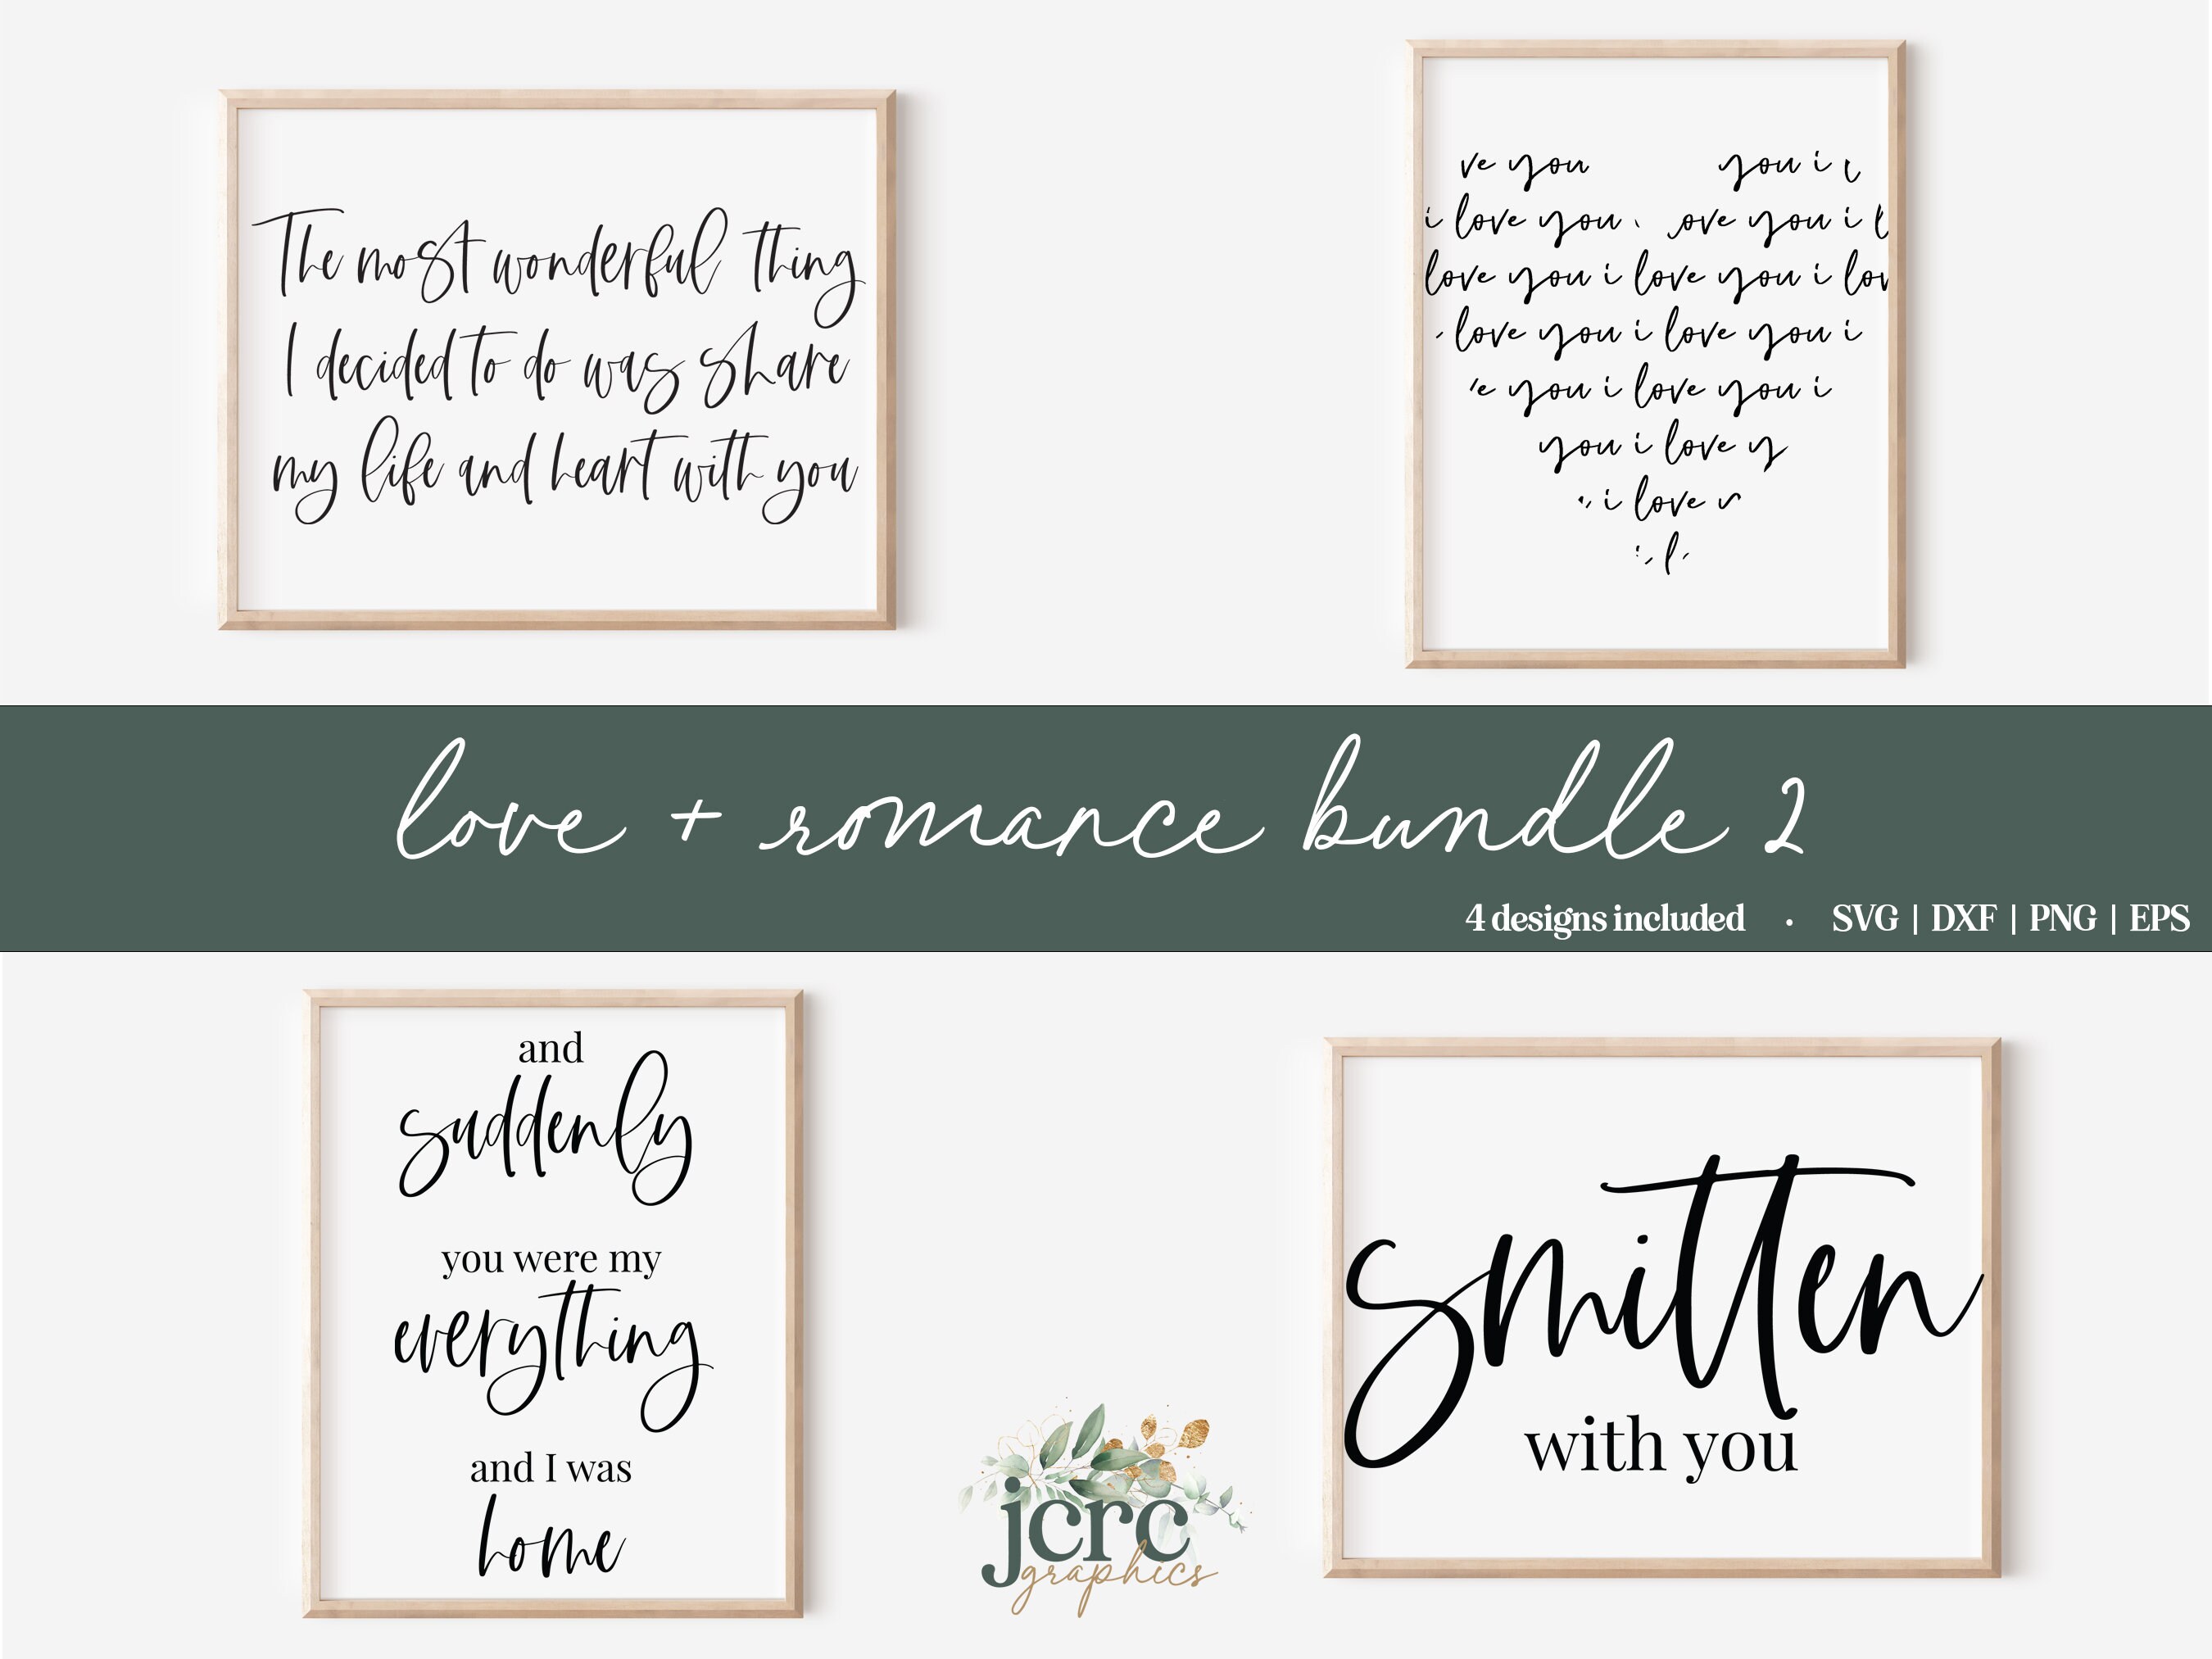 The most wonderful thing
I decided to do was share
my life and heart with you
ve you you i
i love you ove you i l
love you i love you i lov
love you i love you i
e you i love you i
you i love y
i love
l
love + romance bundle 2
4 designs included • SVG | DXF | PNG | EPS
and
suddenly
you were my
everything
and I was
home
smitten
with you
jcrc
graphics